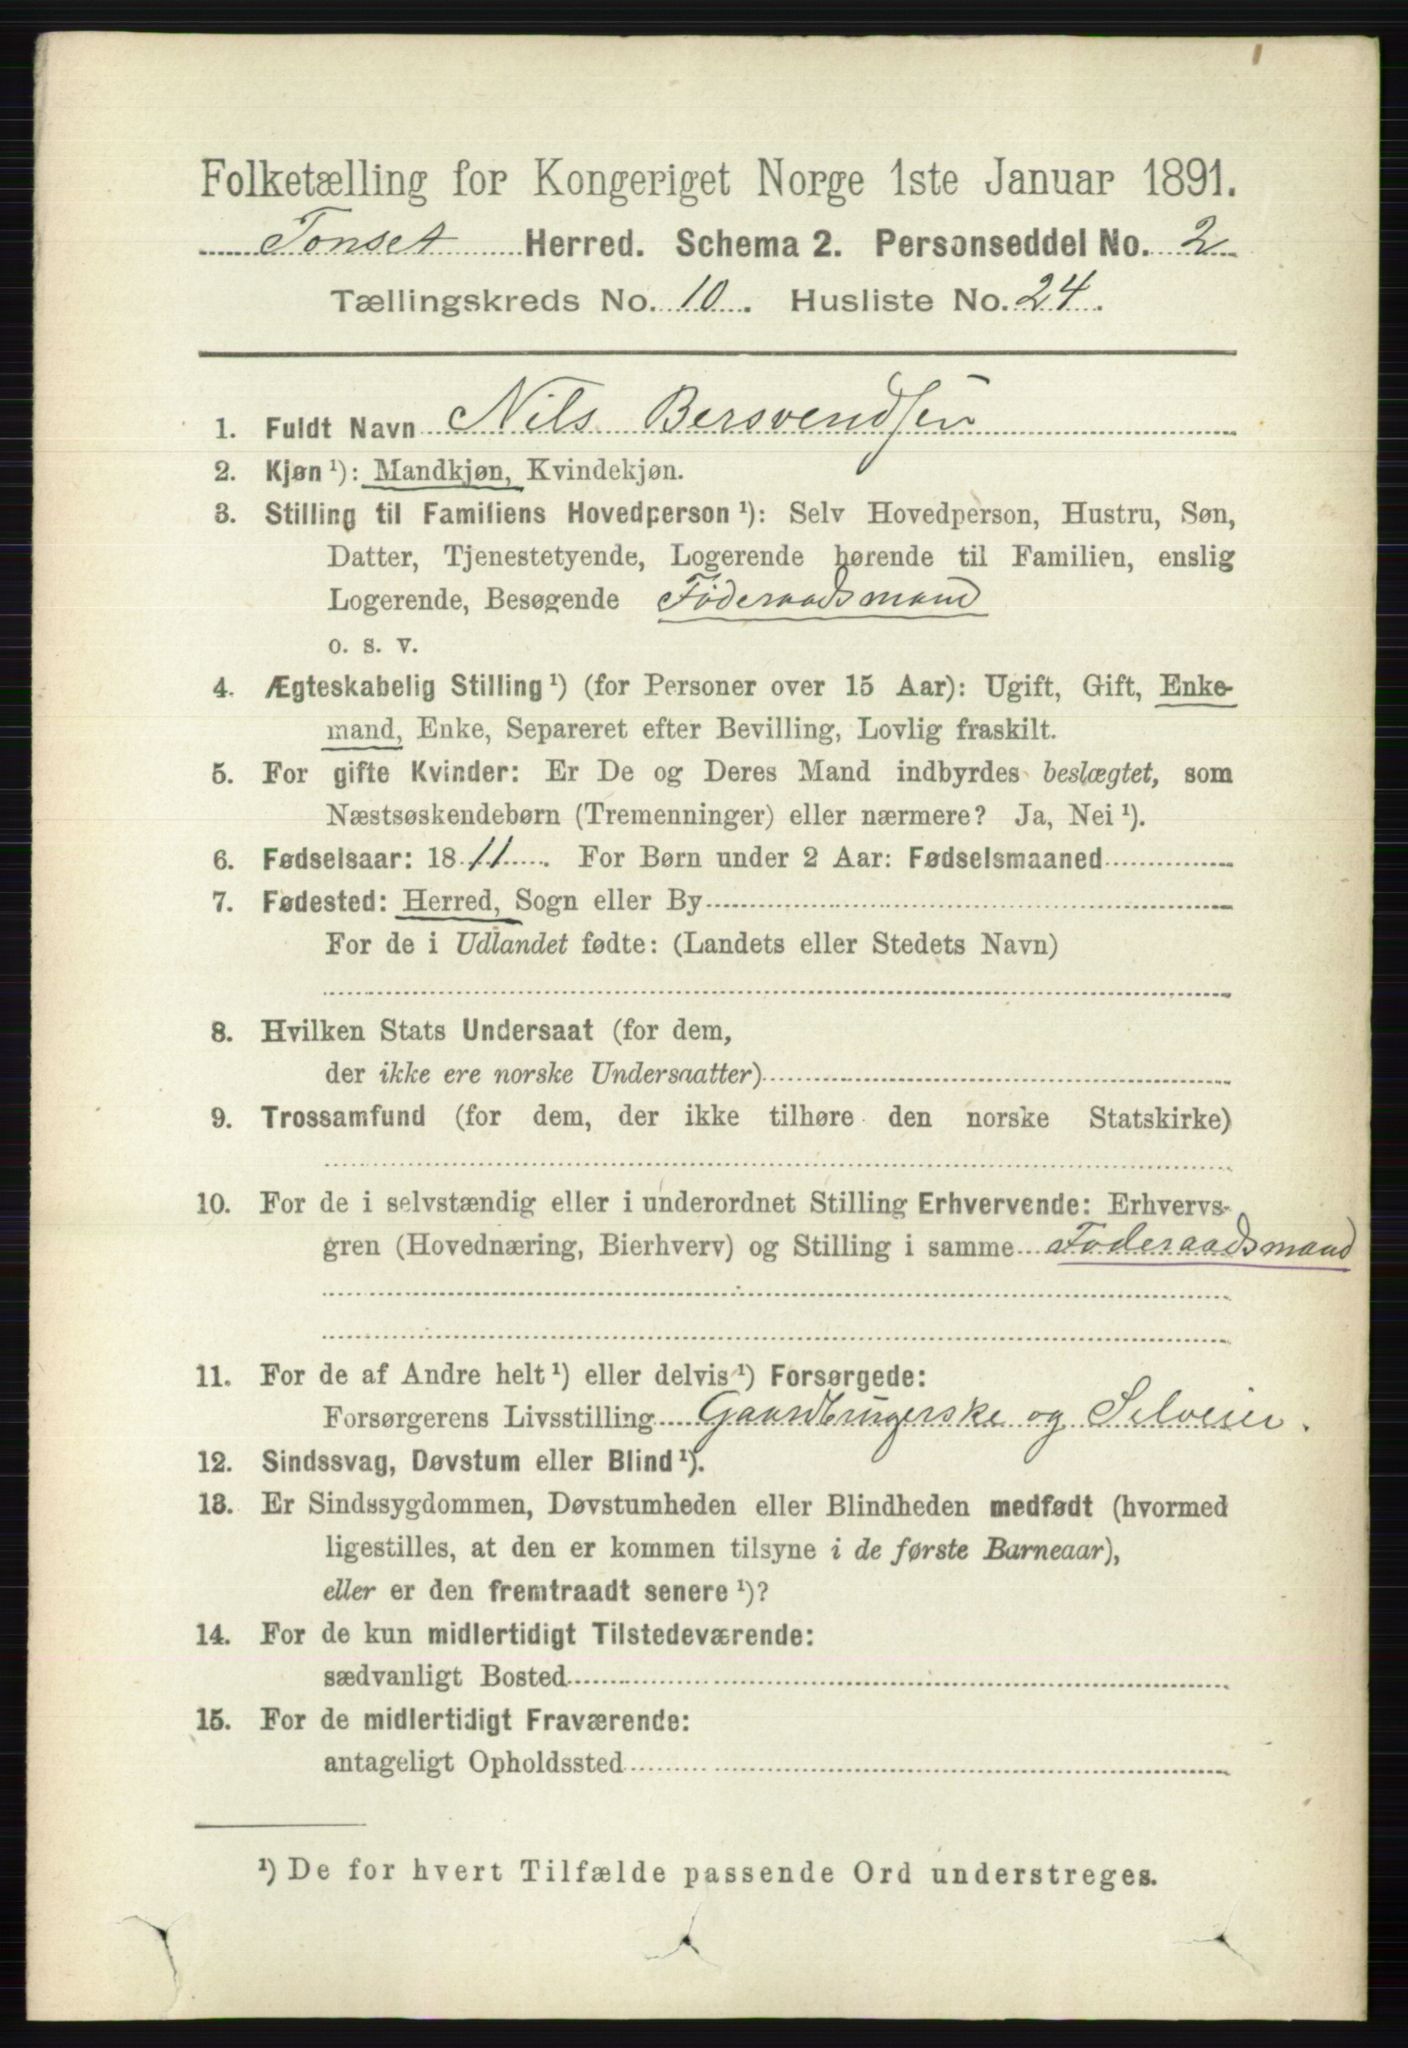 Folketælling for Kongeriget Norge 1ste Januar 1891.
Tonset Herred. Schema 2. Personseddel No. 2
Tællingskreds No. 10. Husliste No. 24.
1. Fuldt Navn Nils Bersvendsen
2. Kjøn ¹): Mandkjøn, Kvindekjøn.
3. Stilling til Familiens Hovedperson ¹): Selv Hovedperson, Hustru, Søn,
Datter, Tjenestetyende, Logerende hørende til Familien, enslig
Logerende, Besøgende Føderaadsmand
o. s. v.
4. Ægteskabelig Stilling ¹) (for Personer over 15 Aar): Ugift, Gift, Enke-
mand, Enke, Separeret efter Bevilling, Lovlig fraskilt.
5. For gifte Kvinder: Er De og Deres Mand indbyrdes beslægtet, som
Næstsøskendebørn (Tremenninger) eller nærmere? Ja, Nei ¹).
6. Fødselsaar: 1811. For Børn under 2 Aar: Fødselsmaaned
7. Fødested: Herred, Sogn eller By
For de i Udlandet fødte: (Landets eller Stedets Navn)
8. Hvilken Stats Undersaat (for dem,
der ikke ere norske Undersaatter)
9. Trossamfund (for dem, der ikke tilhøre den norske Statskirke)
10. For de i selvstændig eller i underordnet Stilling Erhvervende: Erhvervs-
gren (Hovednæring, Bierhverv) og Stilling i samme Føderaadsmand
11. For de af Andre helt ¹) eller delvis ¹) Forsørgede:
Forsørgerens Livsstilling Gaardbrugerske og Selveier.
12. Sindssvag, Døvstum eller Blind ¹).
13. Er Sindssygdommen, Døvstumheden eller Blindheden medfødt (hvormed
ligestilles, at den er kommen tilsyne i de første Barneaar),
eller er den fremtraadt senere ¹)?
14. For de kun midlertidigt Tilstedeværende:
sædvanligt Bosted
15. For de midlertidigt Fraværende:
antageligt Opholdssted
¹) De for hvert Tilfælde passende Ord understreges.